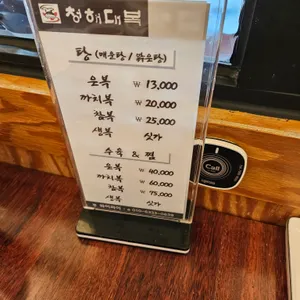 청해대복
탕 (매운탕 / 맑은탕)
은복 ₩ 13,000
까치복 ₩ 20,000
참복 ₩ 25,000
생복 싯가
수육 & 찜
은복 ₩ 40,000
까치복 ₩ 60,000
참복 ₩ 75,000
생복 싯가
Call